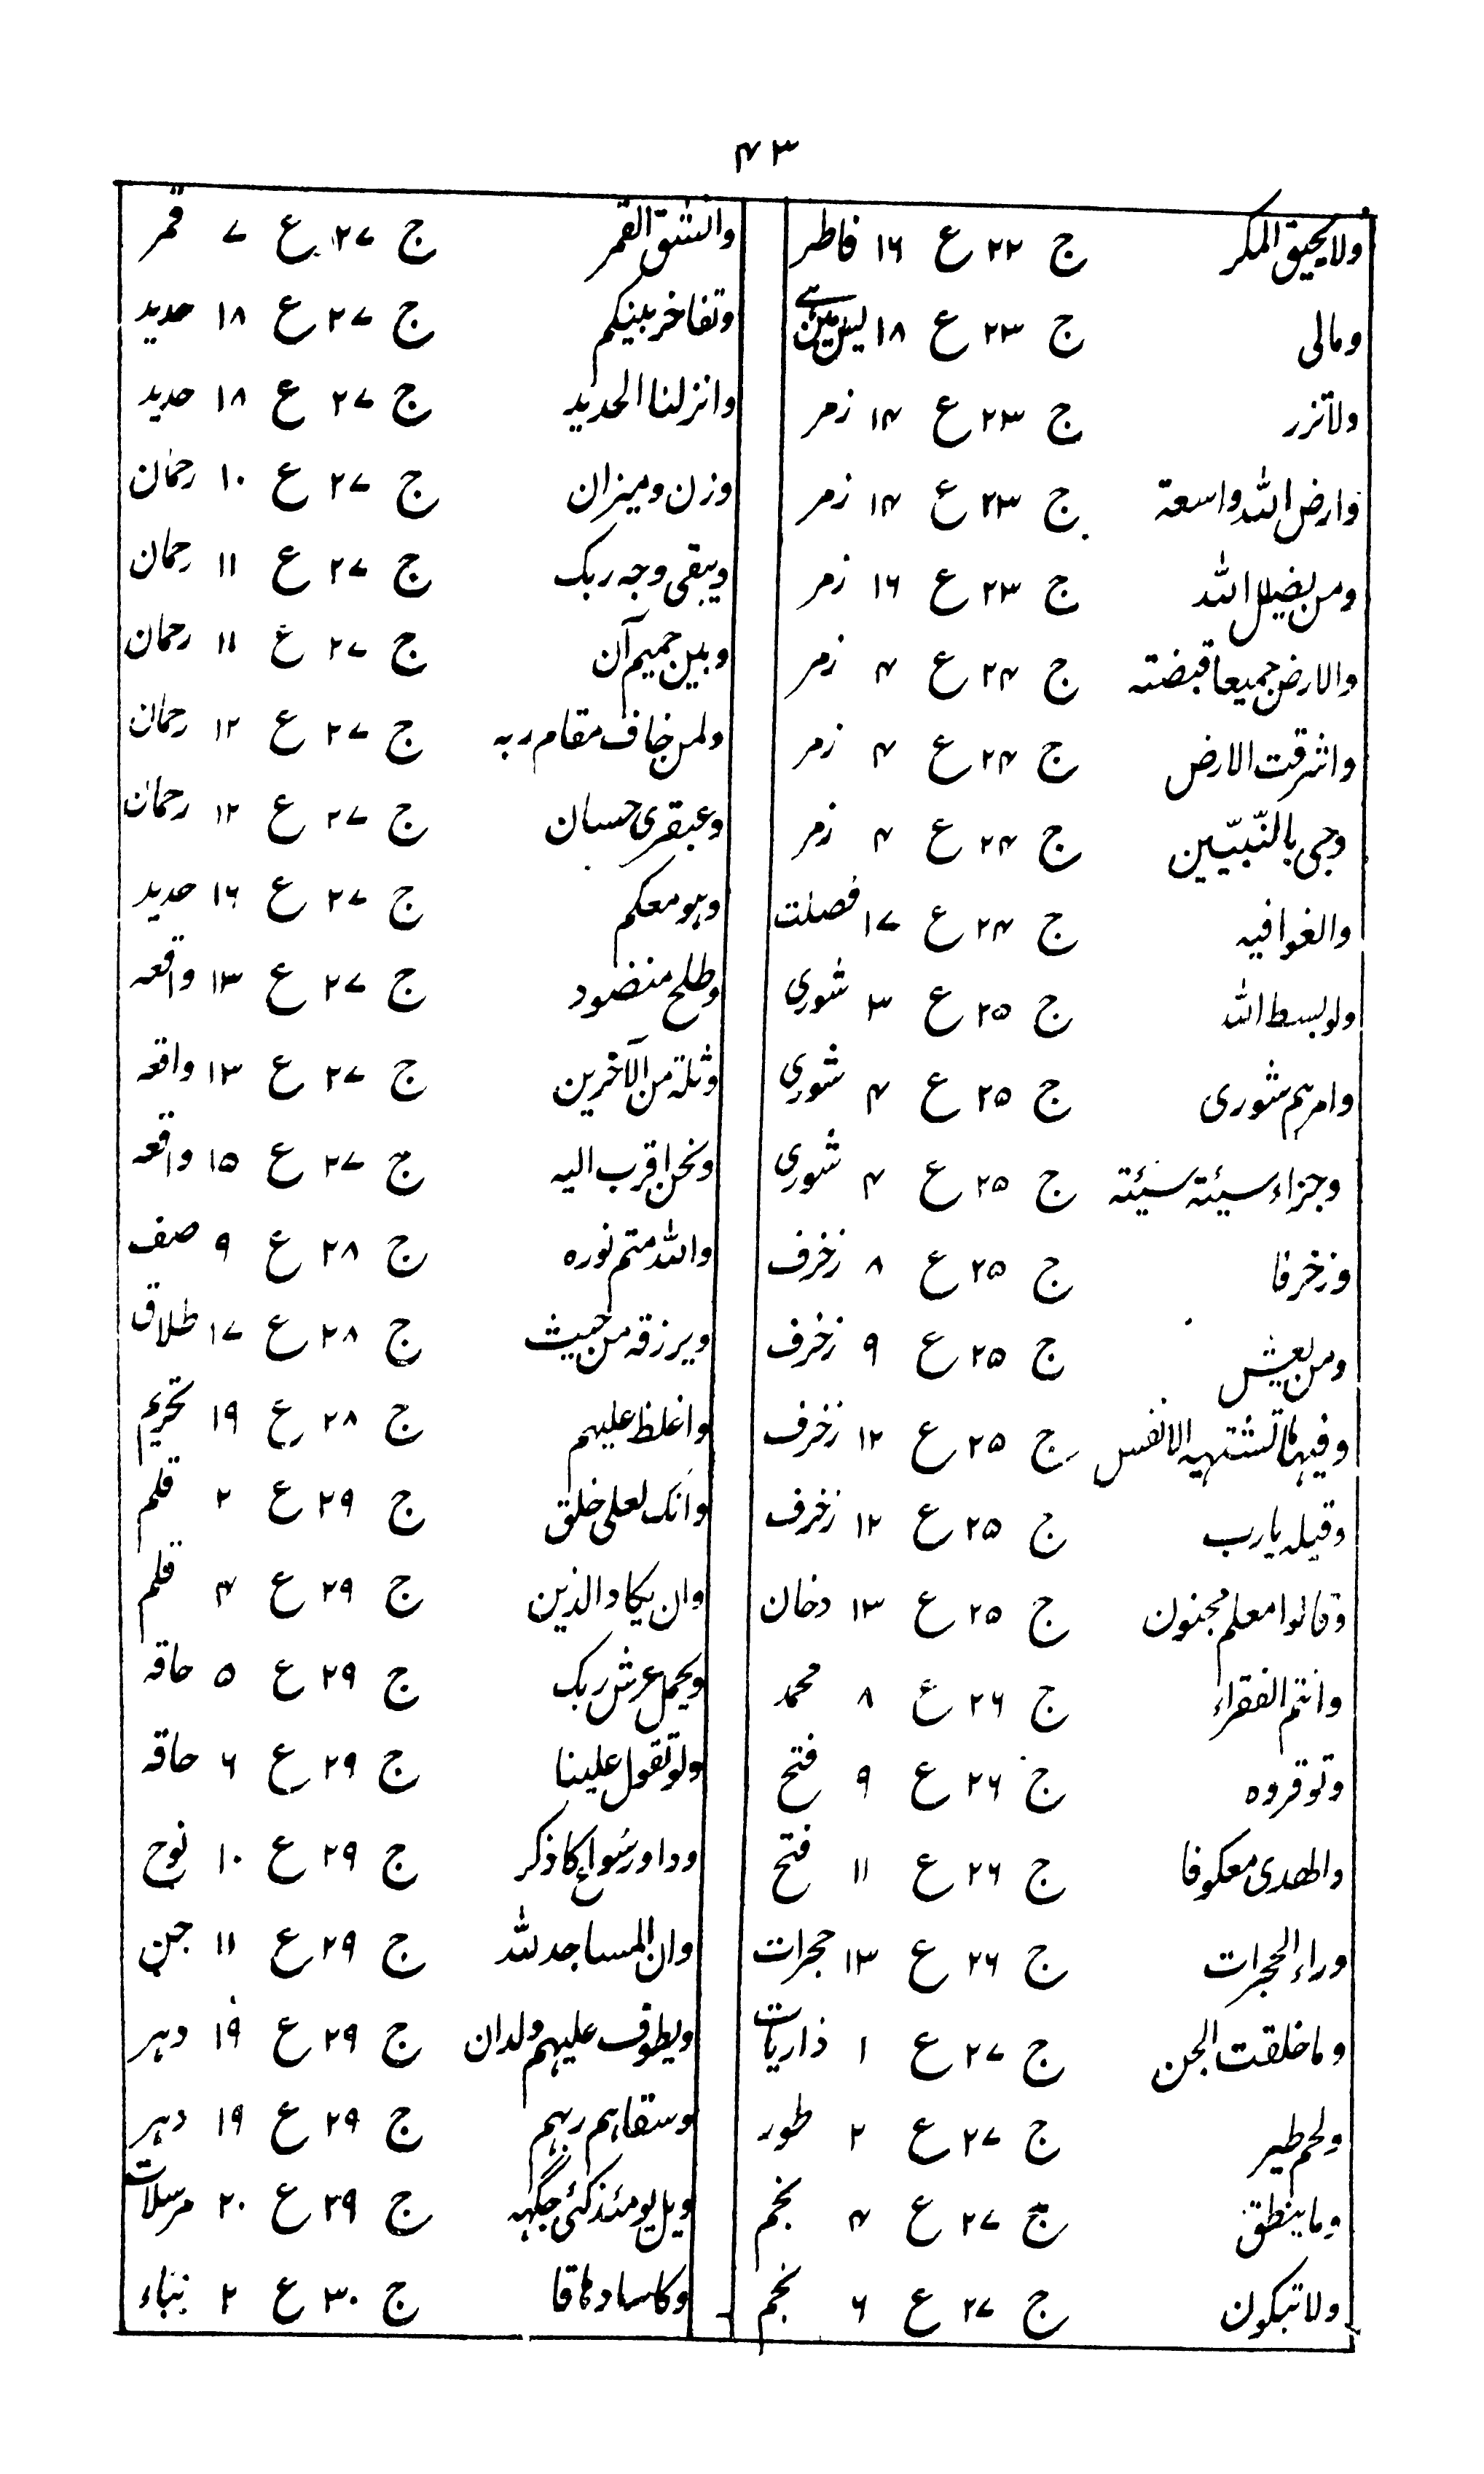 ۴۳
ولا یحیق المکر ج ۲۲ ع ۱۶ فاطر
ومالی ج ۲۳ ع ۱۸ یٰس میں ہے
ولا تزر ج ۲۳ ع ۱۴ زمر
وارض اللہ واسعۃ ج ۲۳ ع ۱۴ زمر
ومن یضلل اللہ ج ۲۳ ع ۱۶ زمر
والارض جمیعا قبضتہ ج ۲۴ ع ۴ زمر
واشرقت الارض ج ۲۴ ع ۴ زمر
وجی بالنّبیّین ج ۲۴ ع ۴ زمر
والغوا فیہ ج ۲۴ ع ۱۷ فصلت
ولو بسط اللہ ج ۲۵ ع ۳ شوری
وامرہم شوری ج ۲۵ ع ۴ شوری
وجزاء سیئۃ سیئتہ ج ۲۵ ع ۴ شوری
وزخرفا ج ۲۵ ع ۸ زخرف
ومن یعش ج ۲۵ ع ۹ زخرف
وفیہا تشتہیہ الانفس ج ۲۵ ع ۱۲ زخرف
وقیلہ یارب ج ۲۵ ع ۱۲ زخرف
وقالوا معلم مجنون ج ۲۵ ع ۱۳ دخان
وانتم الفقراء ج ۲۶ ع ۸ محمد
وتوقروہ ج ۲۶ ع ۹ فتح
والھدی معکوفا ج ۲۶ ع ۱۱ فتح
وراء الحجرات ج ۲۶ ع ۱۳ حجرات
وما خلقت الجن ج ۲۷ ع ۱ ذاریات
ولحم طیر ج ۲۷ ع ۲ طور
وما ینطق ج ۲۷ ع ۴ نجم
ولا تبکون ج ۲۷ ع ۶ نجم
وانشق القمر ج ۲۷ ع ۷ قمر
وتفاخر بینکم ج ۲۷ ع ۱۸ حدید
وانزلنا الحدید ج ۲۷ ع ۱۸ حدید
وزن و میزان ج ۲۷ ع ۱۰ رحمان
ویبقی وجہ ربک ج ۲۷ ع ۱۱ رحمان
وبین حمیم آن ج ۲۷ ع ۱۱ رحمان
ولمن خاف مقام ربہ ج ۲۷ ع ۱۲ رحمان
وعبقری حسان ج ۲۷ ع ۱۲ رحمان
وہو معکم ج ۲۷ ع ۱۶ حدید
وطلح منضود ج ۲۷ ع ۱۳ واقعہ
وثلۃ من الآخرین ج ۲۷ ع ۱۳ واقعہ
ونحن اقرب الیہ ج ۲۷ ع ۱۵ واقعہ
واللہ متم نورہ ج ۲۸ ع ۹ صف
ویرزقہ من حیث ج ۲۸ ع ۱۷ طلاق
واغلظ علیہم ج ۲۸ ع ۱۹ تحریم
وانک لعلی خلق ج ۲۹ ع ۲ قلم
وان یکاد الذین ج ۲۹ ع ۴ قلم
ویحمل عرش ربک ج ۲۹ ع ۵ حاقہ
ولو تقول علینا ج ۲۹ ع ۶ حاقہ
ودا ور سُواع کا ذکر ج ۲۹ ع ۱۰ نوح
وان المساجد للہ ج ۲۹ ع ۱۱ جن
ویطوف علیہم ولدان ج ۲۹ ع ۱۹ دہر
وسقاہم ربہم ج ۲۹ ع ۱۹ دہر
ویل یومئذ کئی جگہہ ج ۲۹ ع ۲۰ مرسلات
وکاسا دہاقا ج ۳۰ ع ۲ نباء